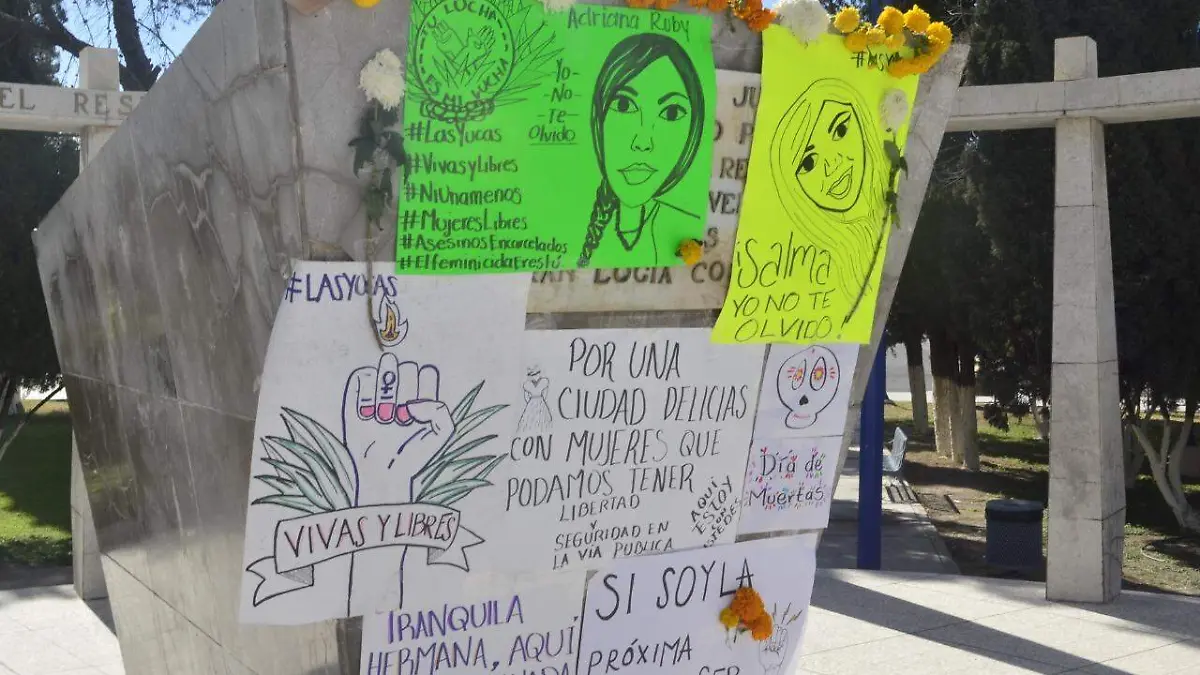 EL RES
TU LUCHA
ES MI
LUCHA
Adriana Ruby
-Yo-
-No-
-Te-
Olvido
#LasYucas
#VivasyLibres
#NiUnamenos
#MujeresLibres
#AsesinosEncarcelados
#ElfeminicidaEresTú
#LASYU
¡Salma
YO NO TE
OLVIDO!
JU
RE
VE
AN LUCIA CO
#LASYUCAS
VIVAS Y LIBRES
POR UNA
CIUDAD DELICIAS
CON MUJERES QUE
PODAMOS TENER
LIBERTAD
Y
SEGURIDAD EN
LA VÍA PUBLICA
AQUÍ
ESTOY
Día de
Muertas
TRANQUILA
HERMANA, AQUÍ
SI SOY LA
PRÓXIMA
SER